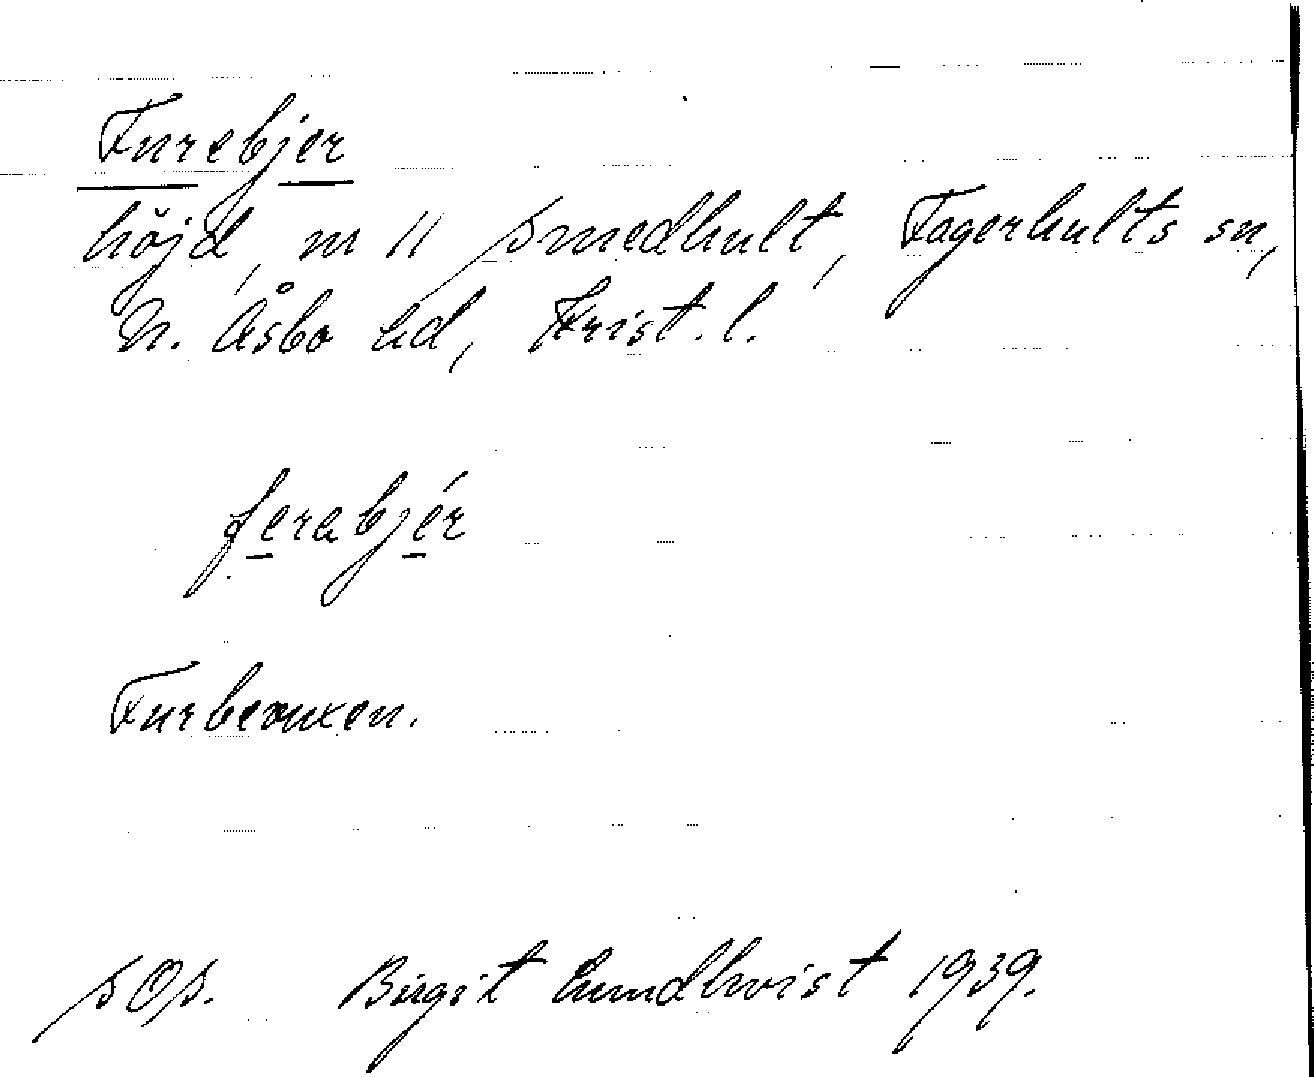 Furebjer
höjd, m 11 Smedhult, Fagerhults sn,
N. Åsbo hd, Krist. l.
ferabjér
Furbevuxen.
SOS. Birgit Lundkvist 1939.